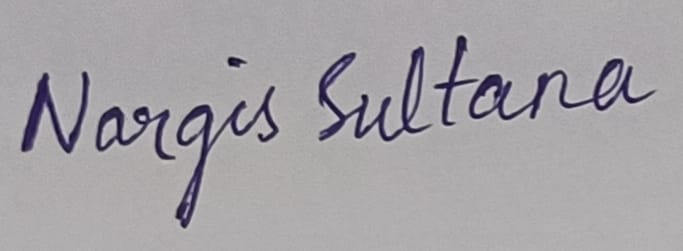 Nargis Sultana